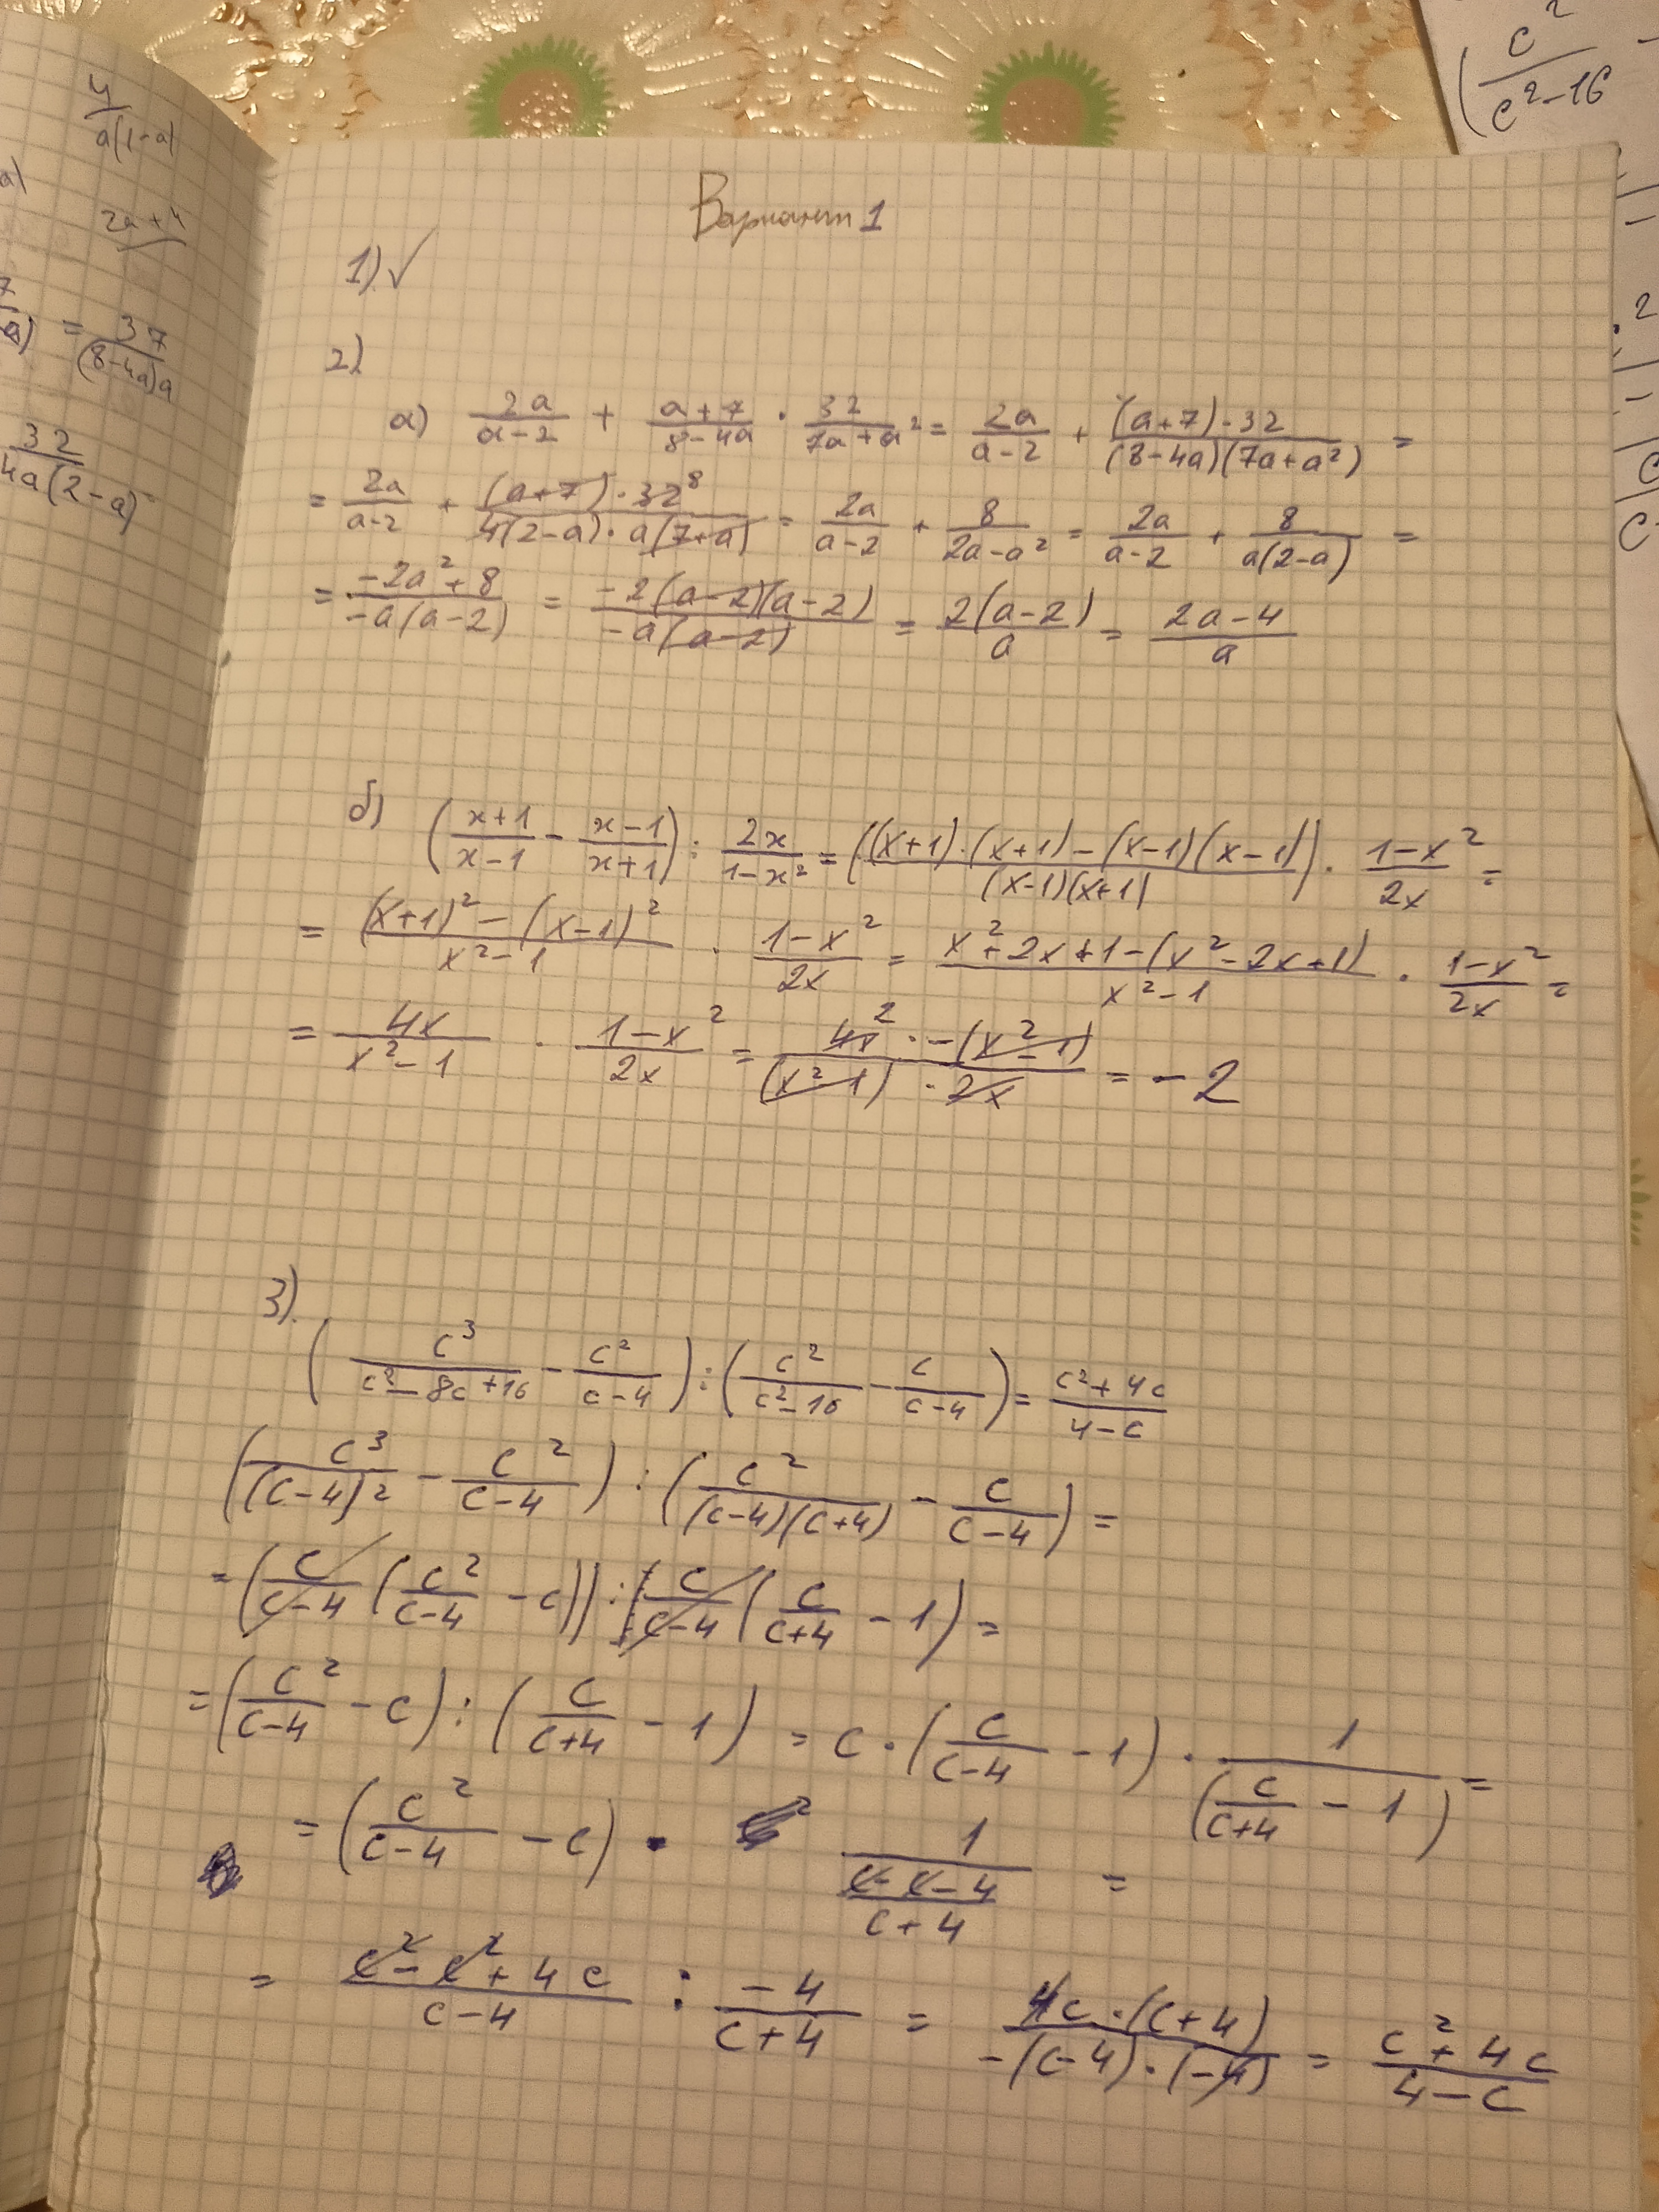 4/(a(1-a)
a)
2a+4
7/a) = 37/((8-4a)a
32/(4a(2-a)
c²/(c²-16
Вариант 1
1) ✓
2)
а) 2a/(a-2) + (a+7)/(8-4a) · 32/(7a+a²) = 2a/(a-2) + ((a+7)·32)/((8-4a)(7a+a²)) =
= 2a/(a-2) + ((a+7)·32⁸)/(4(2-a)·a(7+a)) = 2a/(a-2) + 8/(2a-a²) = 2a/(a-2) + 8/(a(2-a)) =
= (-2a²+8)/(-a(a-2)) = (-2(a-2)(a-2))/(-a(a-2)) = 2(a-2)/a = (2a-4)/a
б) ((x+1)/(x-1) - (x-1)/(x+1)) : 2x/(1-x²) = (((x+1)·(x+1)-(x-1)(x-1))/((x-1)(x+1)) · (1-x²)/2x =
= ((x+1)²-(x-1)²)/(x²-1) · (1-x²)/2x = (x²+2x+1-(x²-2x+1))/(x²-1) · (1-x²)/2x =
= 4x/(x²-1) · (1-x²)/2x = (4x² · -(x²-1))/((x²-1)·2x) = -2
3).
(c³/(c²-8c+16) - c²/(c-4)) : (c²/(c²-16) - c/(c-4)) = (c²+4c)/(4-c)
(c³/(c-4)² - c²/(c-4)) : (c²/((c-4)(c+4)) - c/(c-4)) =
= (c/(c-4) (c²/(c-4) - c)) : (c/(c-4) (c/(c+4) - 1) =
= (c²/(c-4) - c) : (c/(c+4) - 1) = c · (c/(c-4) - 1) · 1/(c/(c+4) - 1) =
= (c²/(c-4) - c) · 1/((c-c-4)/(c+4)) =
= (c²-c²+4c)/(c-4) : -4/(c+4) = (4c·(c+4))/(-(c-4)·(-4)) = (c²+4c)/(4-c)